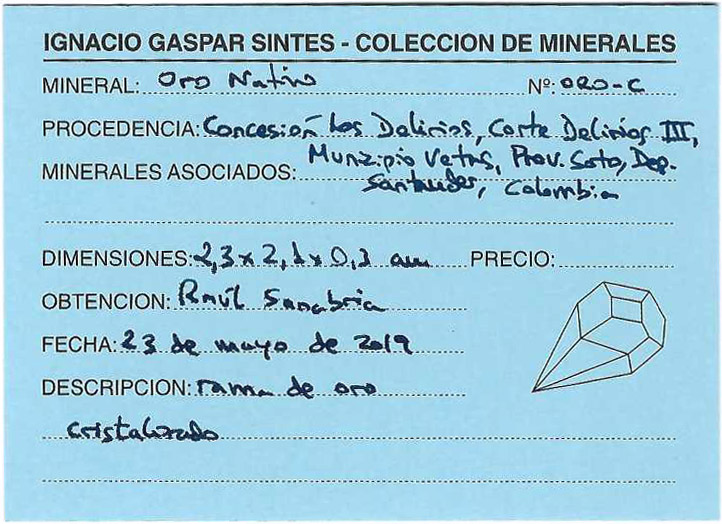 IGNACIO GASPAR SINTES - COLECCION DE MINERALES
MINERAL: Oro Nativo Nº: ORO-C
PROCEDENCIA: Concesión Los Delirios, Corte Delirios III,
Municipio Vetas, Prov. Soto, Dep.
MINERALES ASOCIADOS: Santander, Colombia
DIMENSIONES: 2,3 x 2,1 x 0,3 cm PRECIO:
OBTENCION: Raúl Sanabria
FECHA: 23 de mayo de 2019
DESCRIPCION: rama de oro
cristalizado